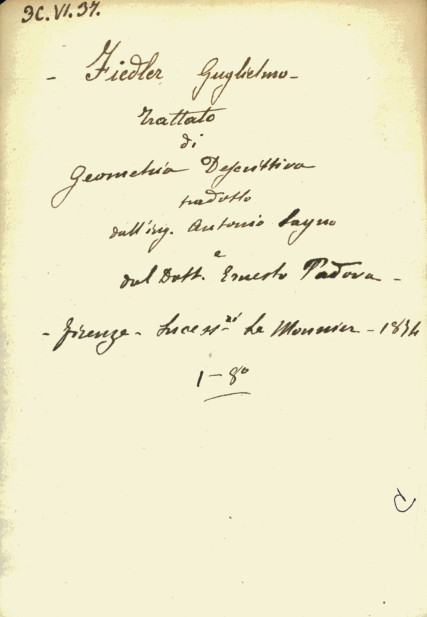 3C.VI.37.
- Fiedler Guglielmo -
Trattato
di
Geometria Descrittiva
tradotto
dall'ing. Antonio Sayno
e
dal Dott. Ernesto Padova -
- Firenze - Success.ri Le Monnier - 1874
1-8°